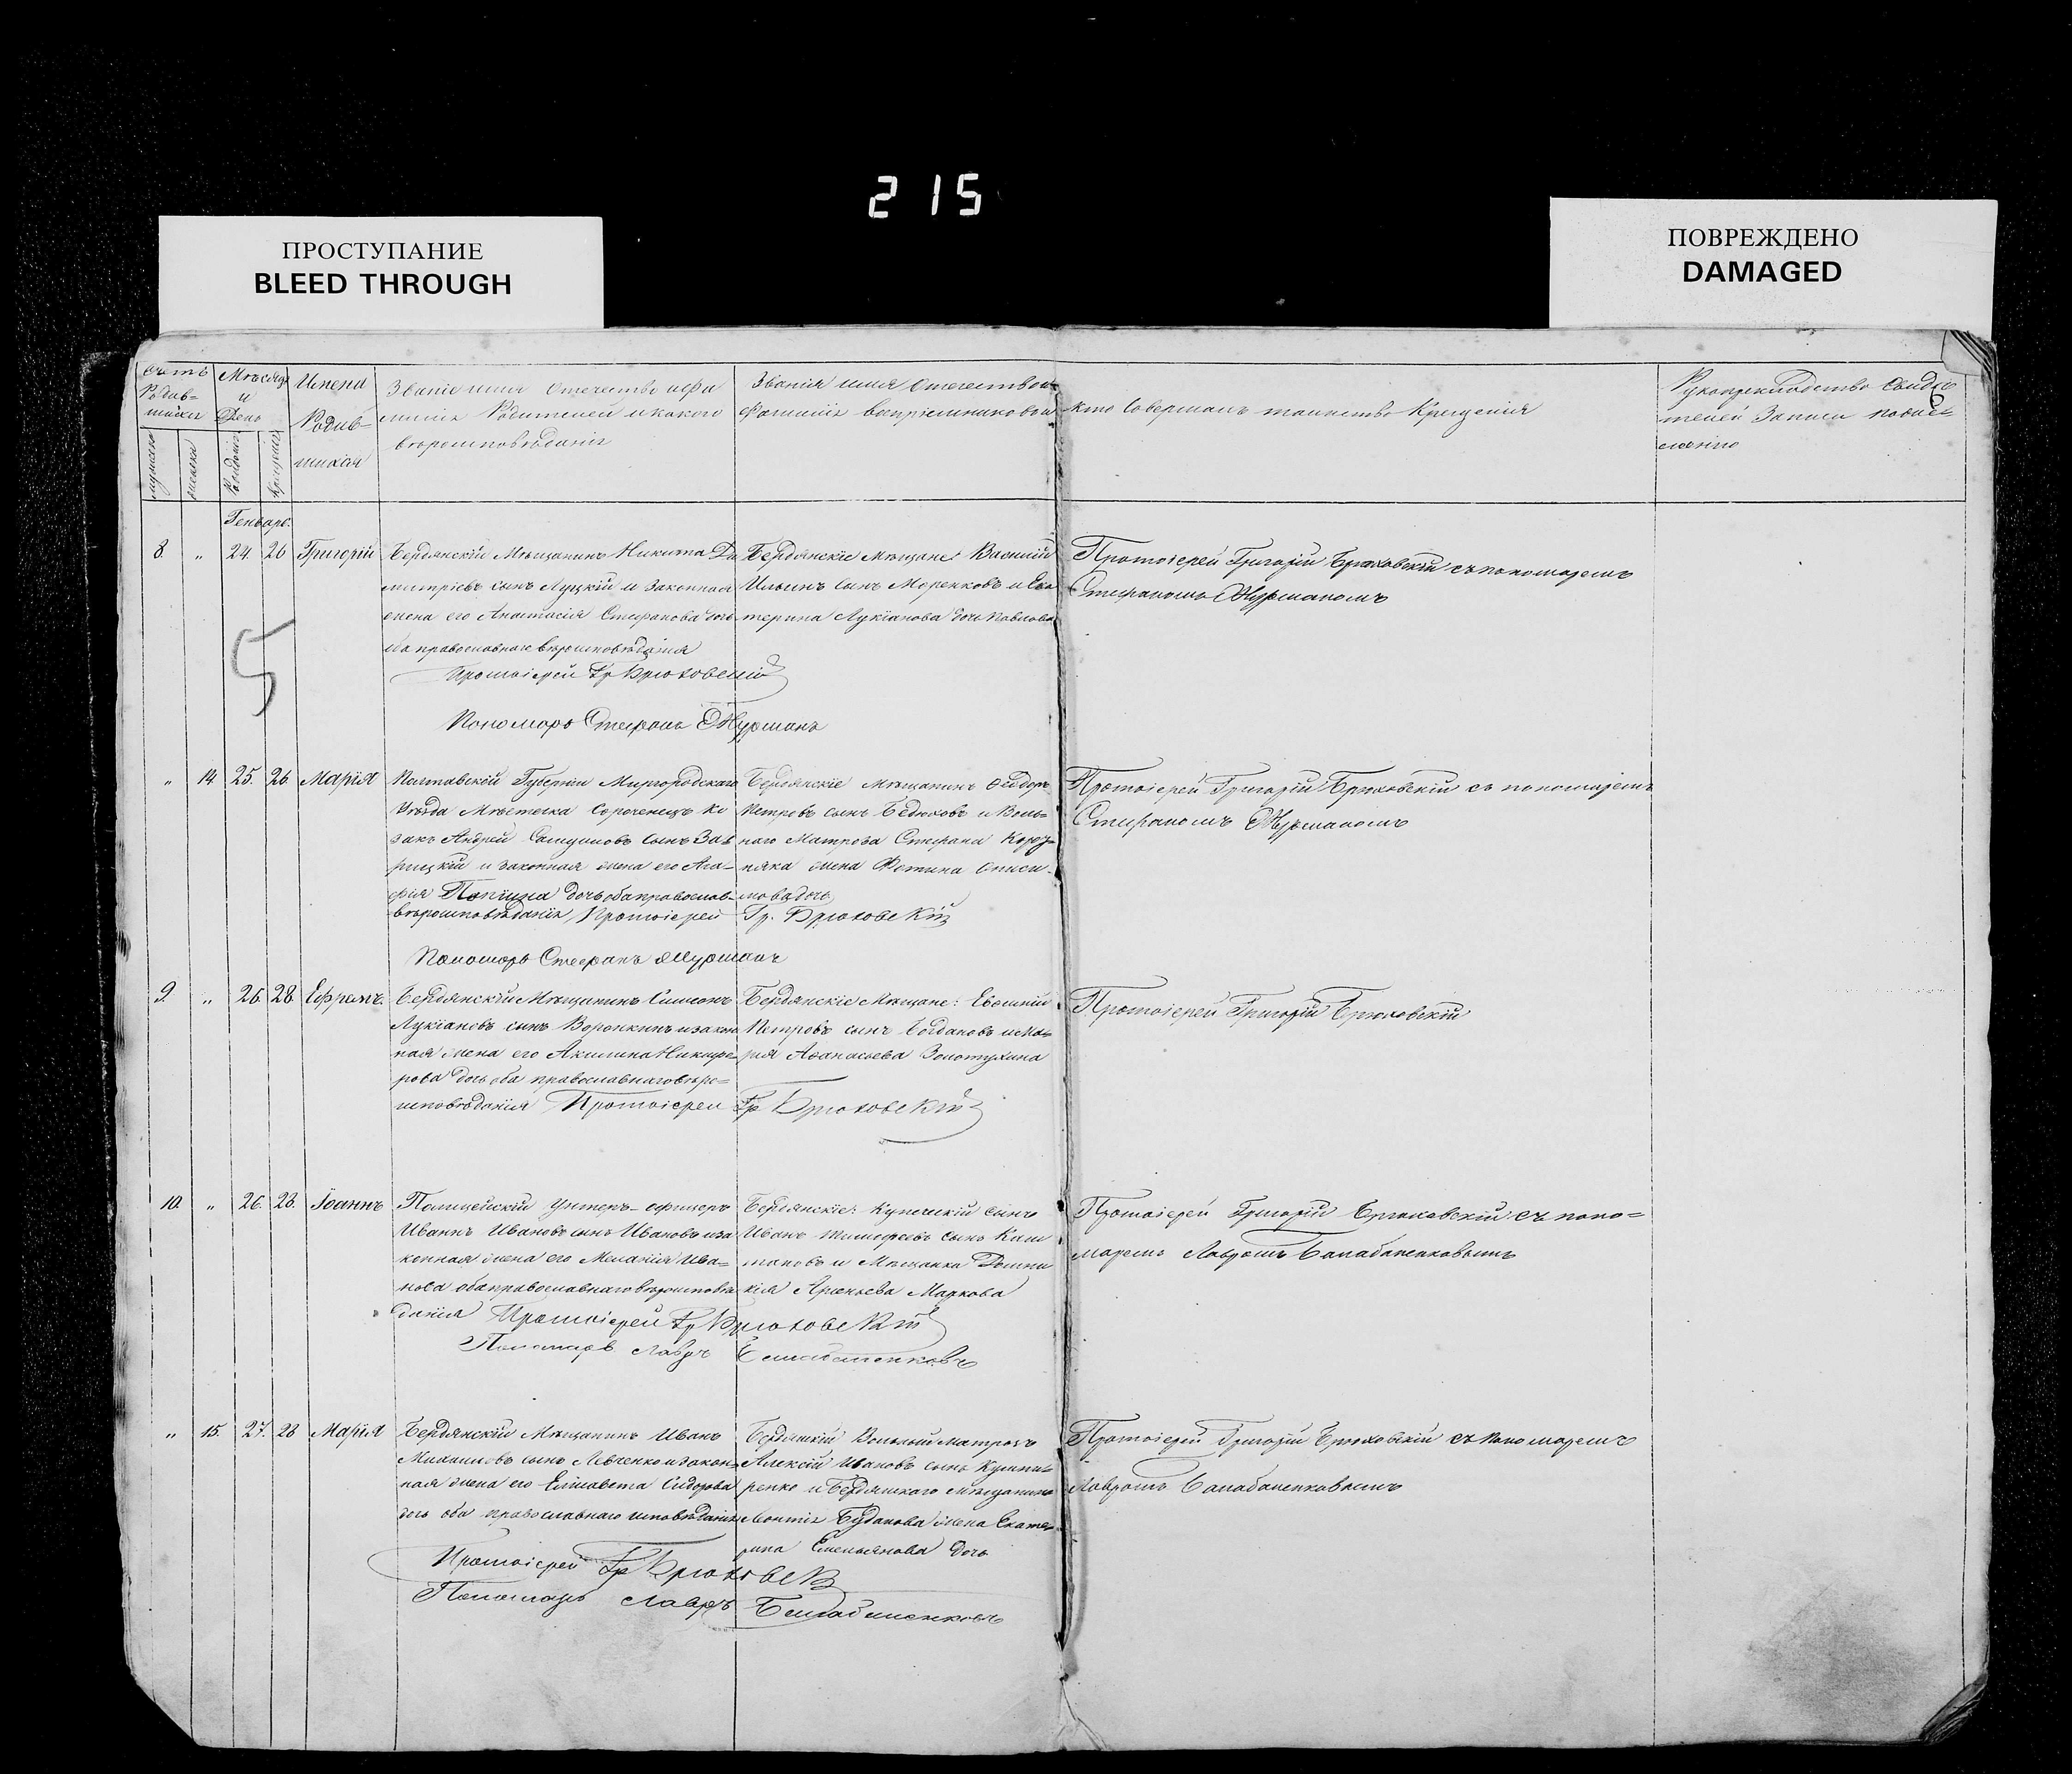 215
ПРОСТУПАНИЕ
BLEED THROUGH
ПОВРЕЖДЕНО
DAMAGED
6
Счетъ
Родив-
шихся
мужеска
женска
Мѣсяцъ
и
День
Рожденія
Крещенія
Имена
Родив-
шихся
Званіе имя Отечество и фа
миліи Родителей и какого
вѣроисповѣданія
Званія имя Отечество и
Фамилія воспріемниковъ и
кто совершалъ таинство Крещенія
Рукоприкладство Свидѣ
телей Записи по
желанію
Генварь.
8. „ 24. 26 Григорій
Бердянскій Мѣщанинъ Никита Ди
митріевъ сынъ Луцкій и Законная
жена его Анастасія Стефанова дочь
оба православнаго вѣроисповѣданія
Протоіерей Гр Брюховскій
Пономарь Стефанъ Журманъ
Бердянскіе Мѣщане: Василій
Ильинъ Сынъ Моренковъ и Ека
терина Лукіанова дочь Павлова
Протоіерей Григорій Брюховскій съ пономаремъ
Стефаномъ Журманомъ
5
„ 14. 25. 26. Марія
Полтавской Губерніи Миргородскаго
Уѣзда Мѣстечка Сороченецъ Ко
закъ Андрей Самуиловъ Сынъ
и законная жена его Ага-
фія дочь оба православ-
вѣроисповѣданія Протоіерей Гр. Брюховскій
Пономарь Стефанъ Журманъ
Бердянскіе Мѣщанинъ Ѳеодоръ
Петровъ сынъ Бедюковъ и Воль-
наго Матроза Стефана
жена Фотина
мова дочь
Протоіерей Григорій Брюховскій съ пономаремъ
Стефаномъ Журманомъ
9. „ 26. 28. Ефремъ.
Бердянскій Мѣщанинъ Симеонъ
Лукіановъ сынъ Воронкинъ и закон
ная жена его Акилина Никифо
рова дочь оба православнаго вѣро-
исповѣданія Протоіерей Гр Брюховскій
Бердянскіе Мѣщане: Евѳимій
Петровъ сынъ Богдановъ и Ма-
рія Аѳанасьева Золотухина
Протоіерей Григорій Брюховскій
10. „ 26. 28. Іоаннъ
Полицейскій Унтеръ-офицеръ
Иванъ Ивановъ сынъ Ивановъ и за
конная жена его Меланія Ива-
нова оба православнаго вѣроисповѣ
данія Протоіерей Гр Брюховскій
Пономарь Лавръ Балабаненковъ
Бердянскіе: Купеческій сынъ
Иванъ Тимофеевъ сынъ Каш
тановъ и Мѣщанка Домни
кія Арсеньева Маркова
Протоіерей Григорій Брюховскій съ поно=
маремъ Лавромъ Балабаненковымъ
„ 15. 27. 28 Марія
Бердянскій Мѣщанинъ Иванъ
Михаиловъ сынъ Левченко и закон-
ная жена его Елисавета Сидорова
дочь оба православнаго исповѣданія
Протоіерей Гр Брюховск
Пономарь Лавръ Балабаненковъ
Бердянскій Вольный матрозъ
Алексій Ивановъ сынъ Кушни-
ренко и Бердянскаго Мѣщанина
Леонтія Буданова жена Екате-
рина Емельянова дочь
Протоіерей Григорій Брюховскій съ пономаремъ
Лавромъ Балабаненковымъ